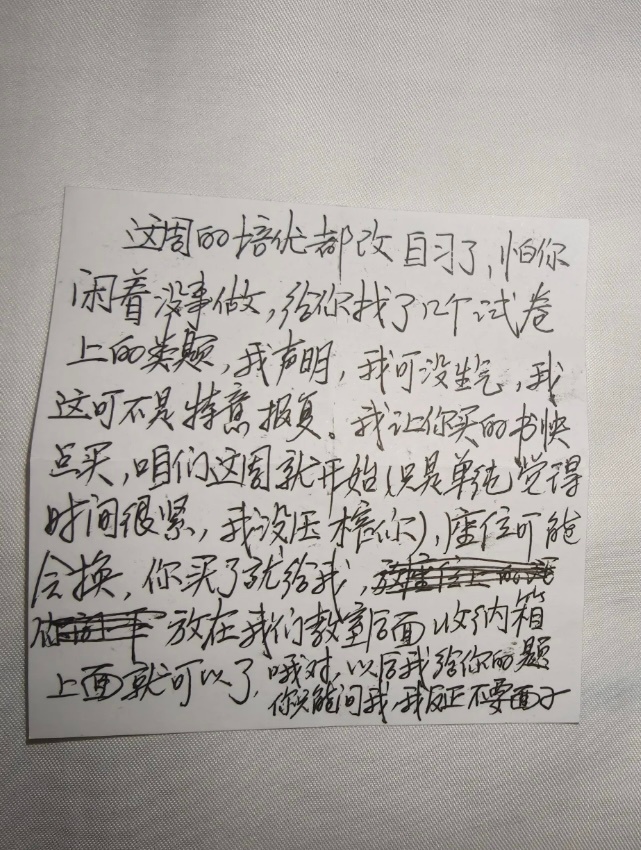 这周的培优都改自习了，怕你
闲着没事做，给你找了几个试卷
上的类题，我声明，我可没生气，我
这可不是特意报复。我让你买的书快
点买，咱们这周就开始（只是单纯觉得
时间很紧，我没压榨你），座位可能
会换，你买了就给我，
放在我们教室后面收纳箱
上面就可以了，哦对，以后我给你的题
你只能问我，我反正不要面子